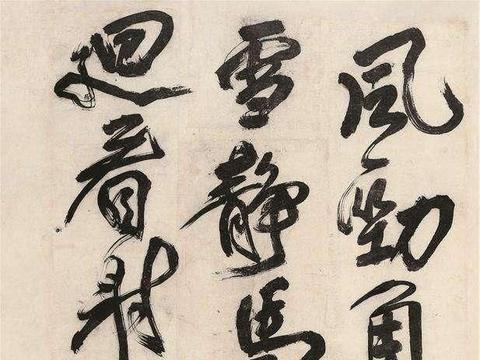 風勁角
雪静馬
迴看射